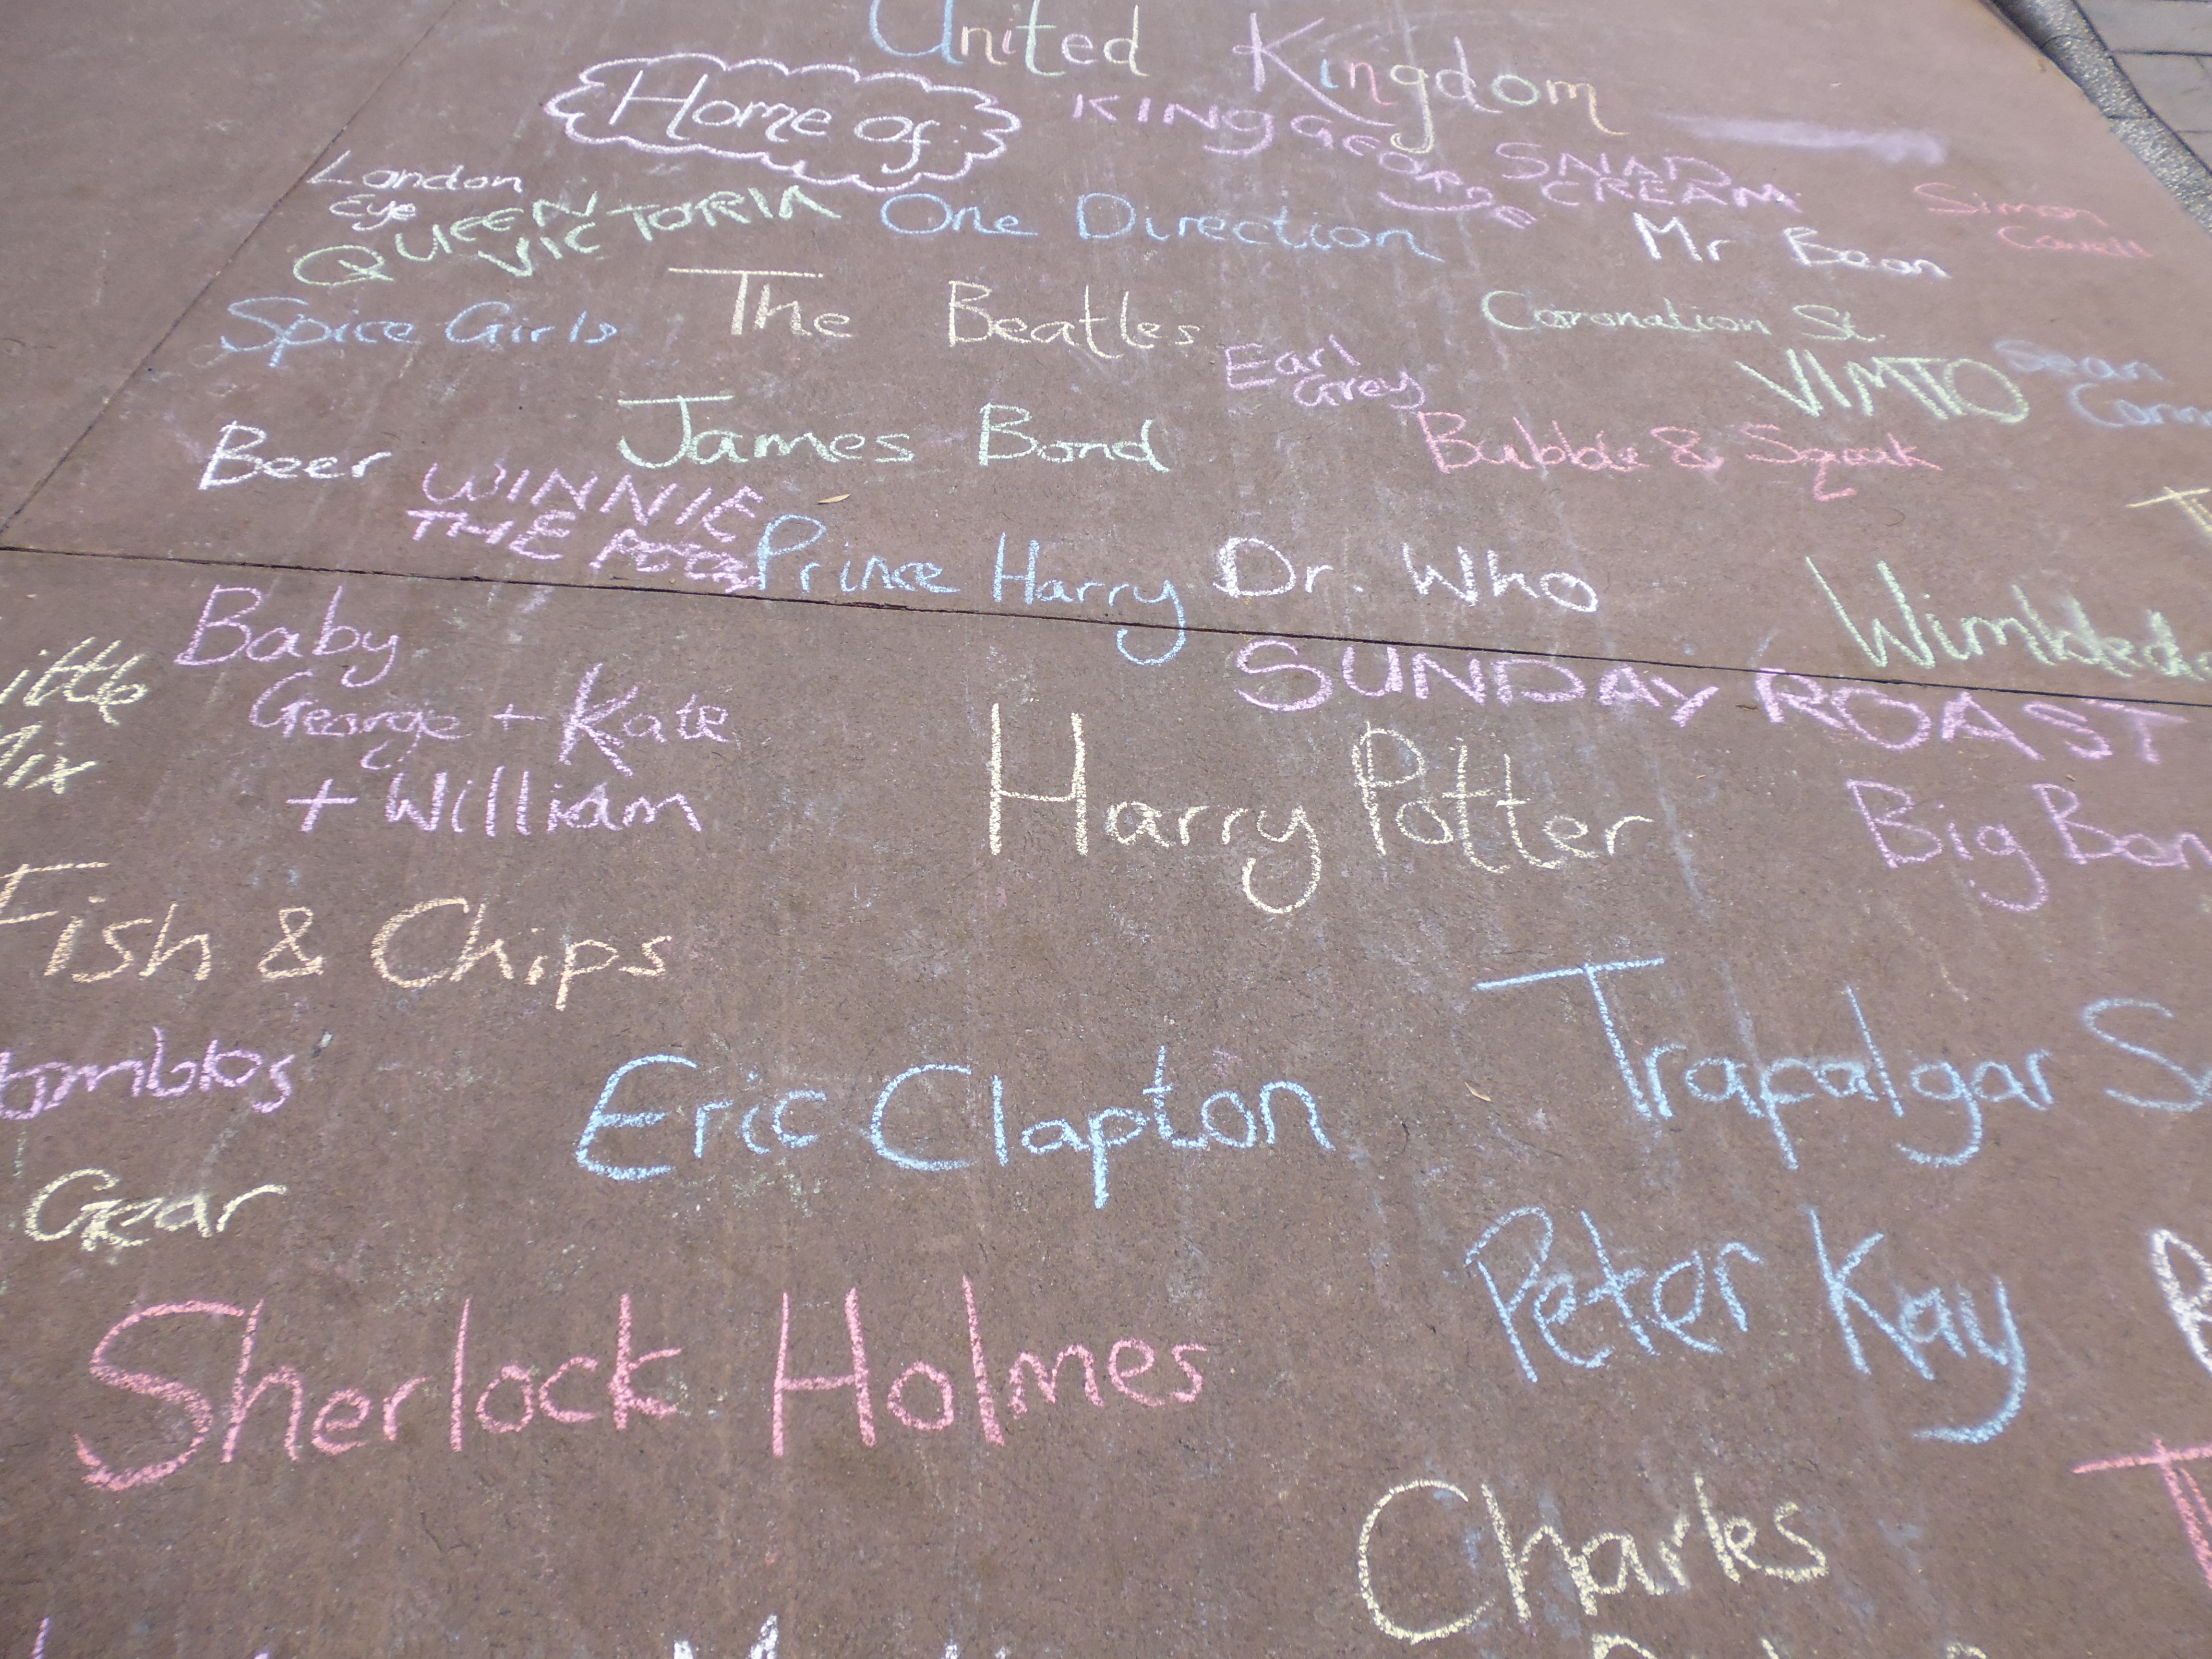 United Kingdom
Home of:
KING GEORGE
London
Eye
QUEEN
VICTORIA
One Direction
CREAM
Mr Bean
Simon
Cowell
Spice Girls
The Beatles
Earl
Grey
Coronation St.
VIMTO
Sean
Conn
Beer
WINNIE
THE POOH
James Bond
Bubble & Squeak
Prince Harry
Dr. Who
Wimbledo
ittle
Mix
Baby
George + Kate
+ William
SUNDAY ROAST
Harry Potter
Big Ben
Fish & Chips
ombles
Eric Clapton
Trafalgar S
Gear
Peter Kay
Sherlock Holmes
Charles